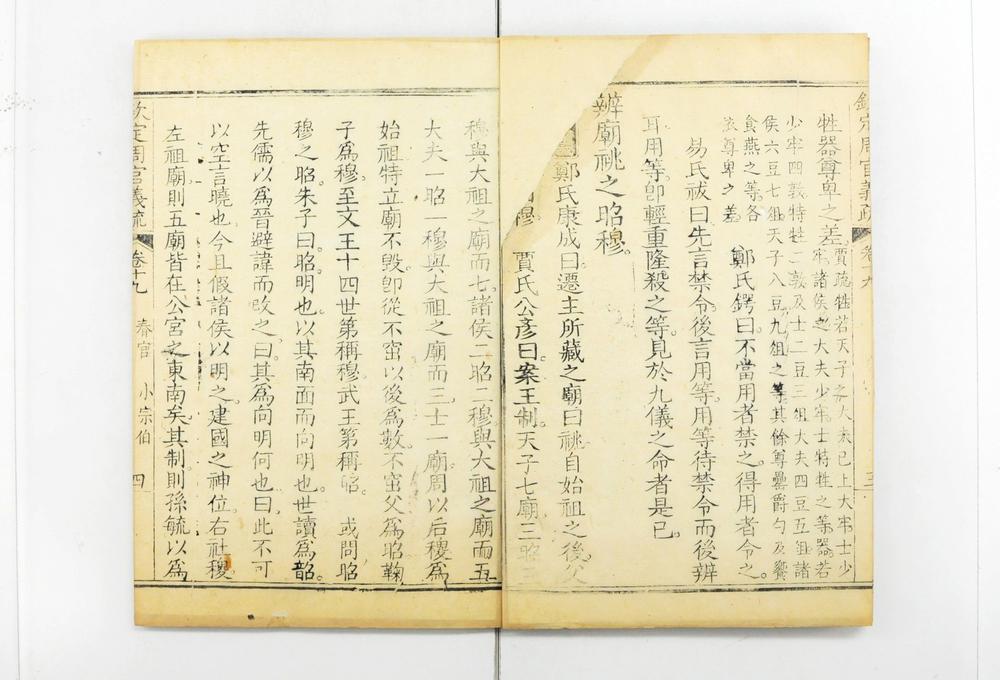 牲器尊卑之差。賈疏牲若天子之大夫已上大牢士少
牢諸侯之大夫少牢士特牲之等器若
少牢四敦特牲二敦及士二豆三俎大夫四豆五俎諸
侯六豆七俎天子八豆九俎之等其餘尊罍爵勺及饗
食燕之等各
依尊卑之差
鄭氏鍔曰不當用者禁之得用者令之。
易氏祓曰先言禁令後言用等用等待禁令而後辨
耳用等卽輕重隆殺之等見於九儀之命者是已
辨廟祧之昭穆。
鄭氏康成曰遷主所藏之廟曰祧自始祖之後父
穆 賈氏公彥曰案王制天子七廟三昭三
穆與大祖之廟而七諸侯二昭二穆與大祖之廟而五
大夫一昭一穆與大祖之廟而三士一廟周以后稷爲
始祖特立廟不毀卽從不窋以後爲數不窋父爲昭鞠
子爲穆至文王十四世第稱穆武王第稱昭。 或問昭
穆之昭朱子曰昭明也以其南面而向明也世讀爲韶
先儒以爲晉避諱而改之曰其爲向明何也曰此不可
以空言曉也今且假諸侯以明之建國之神位右社稷
左祖廟則五廟皆在公宮之東南矣其制則孫毓以爲
欽定周官義疏 卷十九 春官 小宗伯 四